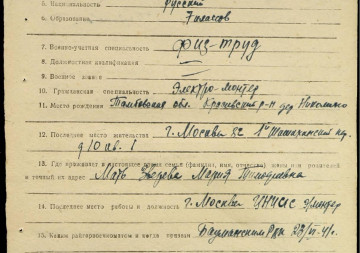 5. Национальность русский
6. Образование 7 классов
7. Военно-учетная специальность физ-труд
8. Должностная квалификация —
9. Воинское звание —
10. Гражданская специальность Электро-монтер
11. Место рождения Тамбовская обл. р-н дер
12. Последнее место жительства г. Москва 82 1й
д 10 кв. 1
13. Где проживает в настоящее время семья (фамилия, имя, отчество) жены или родителей
и точный их адрес Мать Мария Тимофеевна
14. Последнее место работы и должность г. Москва
15. Каким райгорвоенкоматом и когда призван Бауманским Рвк